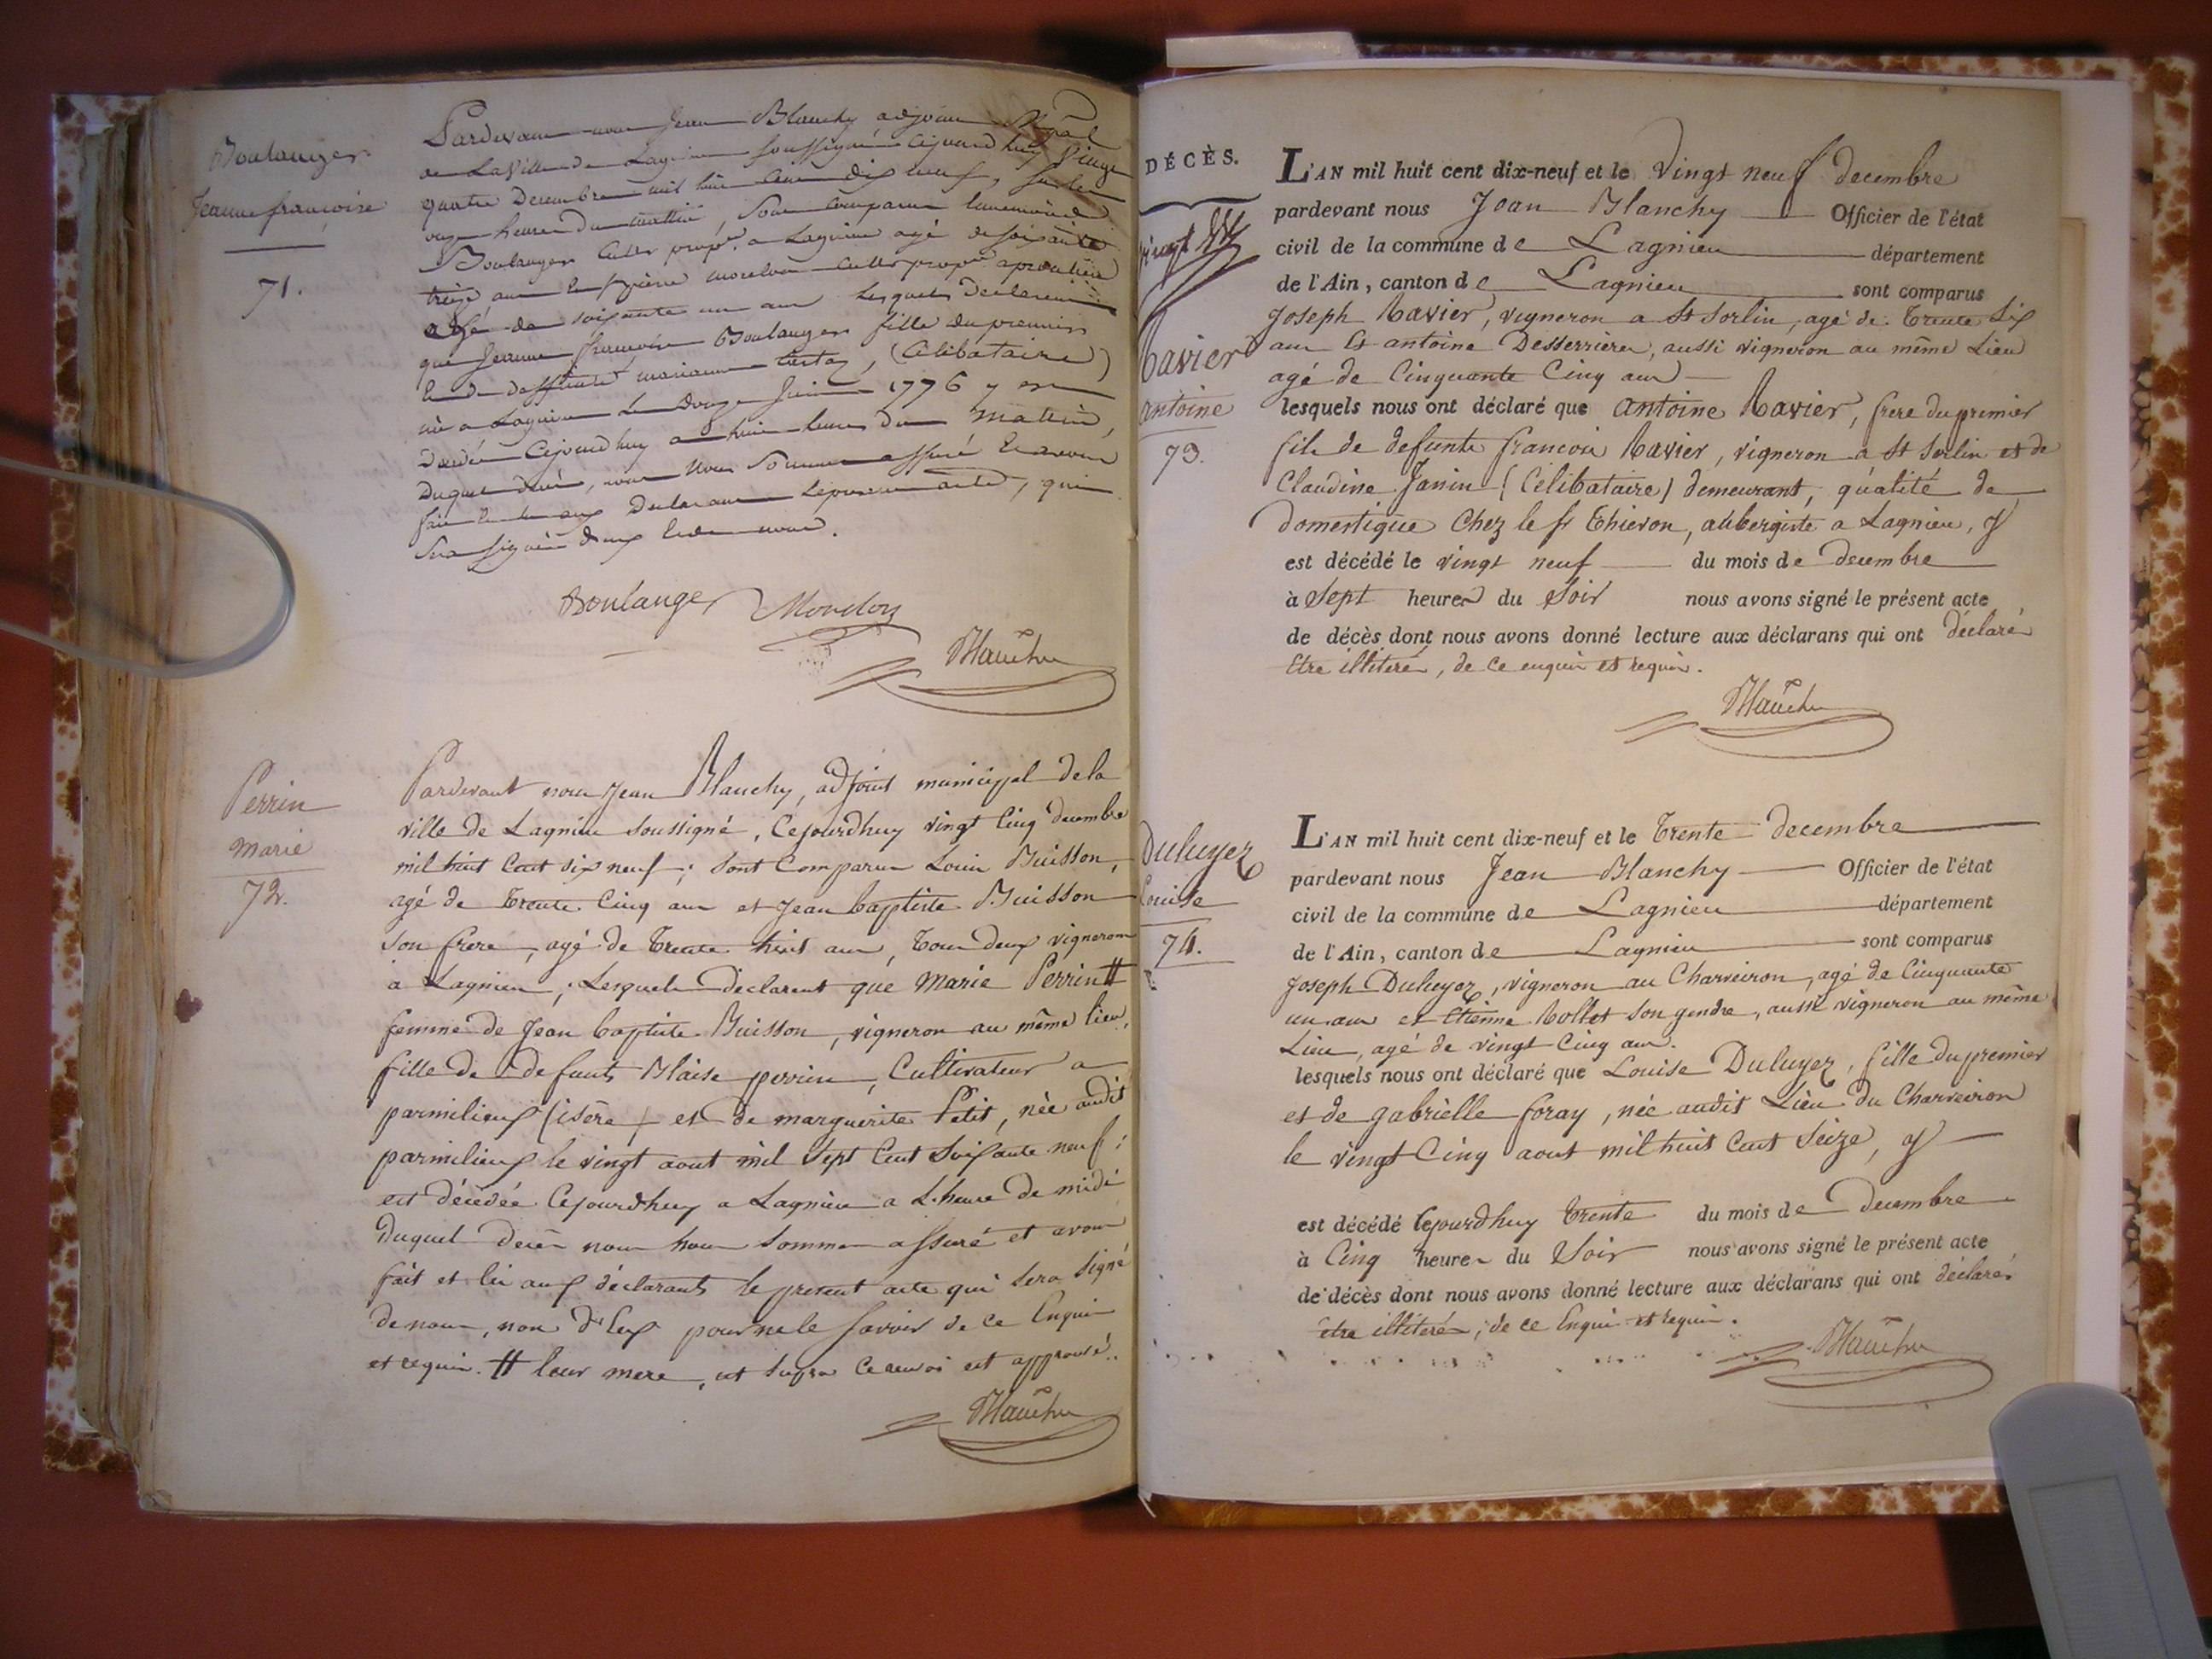 Boulanger
Jeanne françoise
71.
Pardevant nous Jean Blanchy adjoint Mpāl
de La Ville de Lagnieu soussigné Cejourdhuy Vingt
quatre Decembre mil huit Cent dix neuf, sur les
onze heures du matin, Sont Comparus
Boulanger Cultr propre. a Lagnieu agé de soixante
treize ans et pierre Cultr propre
agé de soixante un ans Lesquels Declarent
que Jeanne francoise Boulanger fille du premier
et de deffunte marianne, (Celibataire)
née a Lagnieu Le Douze Juin 1776 y est
Décédée Cejourdhuy a huit heures du matin,
Duquel Décés, nous Nous Sommes assuré Et avons
fait et lu aux Declarants Le présent acte, qui
Sera signé d'eux Et de nous.
Boulanger Monclon
Blanchy
Perrin
marie
72.
Pardevant nous Jean Blanchy, adjoint municipal de la
ville de Lagnieu soussigné, Cejourdhuy vingt Cinq decembre
mil huit Cent dix neuf; sont Comparus Louis Buisson,
agé de trente Cinq ans et Jean baptiste Buisson
son frere, agé de trente huit ans, tous deux vignerons
a Lagnieu; Lesquels declarent que Marie Perrin #
femme de Jean baptiste Buisson, vigneron au même lieu,
fille de defunts Blaise perrin, Cultivateur a
parmilieux (isère) et de marguerite Petit, née audit
parmilieux le vingt aout mil sept Cent soixante neuf;
est décédée Cejourdhuy a Lagnieu a L'heure de midi
Duquel decès nous nous sommes assuré et avons
fait et lu aux déclarants le present acte qui sera signé
de nous, non d'eux pour ne le savoir de ce Enquis
et requis. # leur mere, ut supra Ce renvoi est approuvé.
Blanchy
DÉCÈS.
Ravier
antoine
73.
L'AN mil huit cent dix-neuf et le Vingt neuf decembre
pardevant nous Jean Blanchy Officier de l'état
civil de la commune de Lagnieu département
de l'Ain, canton de Lagnieu sont comparus
Joseph Ravier, vigneron a St Sorlin, agé de trente six
ans Et antoine Desserriere, aussi vigneron au même Lieu
agé de Cinquante Cinq ans
lesquels nous ont déclaré que antoine Ravier, frere du premier
fils de defunts francois Ravier, vigneron a St Sorlin et de
Claudine Janin (Célibataire) demeurant, qualité de
domestique Chez le sr Thievon, aubergiste a Lagnieu, y
est décédé le vingt neuf du mois de decembre
à Sept heures du Soir nous avons signé le présent acte
de décès dont nous avons donné lecture aux déclarans qui ont déclaré
Etre illitéré, de ce enquis et requis.
Blanchy
Duluyez
Louise
74.
L'AN mil huit cent dix-neuf et le Trente decembre
pardevant nous Jean Blanchy Officier de l'état
civil de la commune de Lagnieu département
de l'Ain, canton de Lagnieu sont comparus
Joseph Duluyez, vigneron au Charveiron, agé de Cinquante
un ans et Etienne Collet son gendre, aussi vigneron au même
Lieu, agé de vingt Cinq ans.
lesquels nous ont déclaré que Louise Duluyez, fille du premier
et de gabrielle foray, née audit Lieu du Charveiron
le vingt Cinq aout mil huit Cent Seize, y
est décédé Cejourdhuy trente du mois de decembre
à Cinq heures du Soir nous avons signé le présent acte
de décès dont nous avons donné lecture aux déclarans qui ont déclaré
etre illitéré, de ce Enquis et requis.
Blanchy